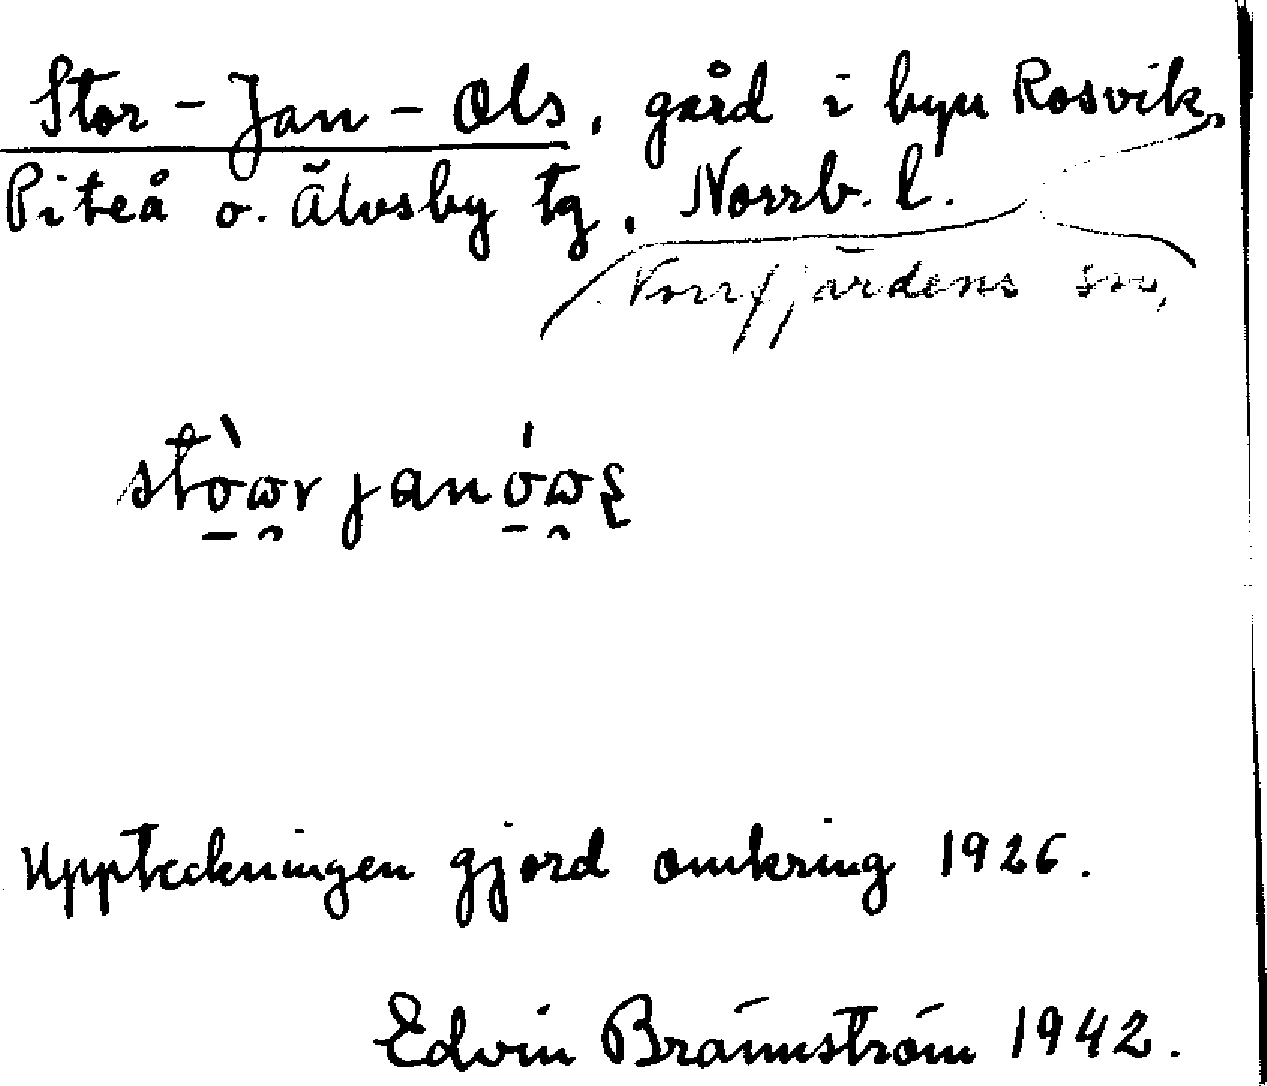 Stor-Jan-Ols, gård i byn Rosvik,
Piteå o. Älvsby tg, Norrb. l.
Norrfjärdens sn,
stò̱ɷ̯r jan ó̱ɷ̯ʂ
Uppteckningen gjord omkring 1926.
Edvin Brännström 1942.